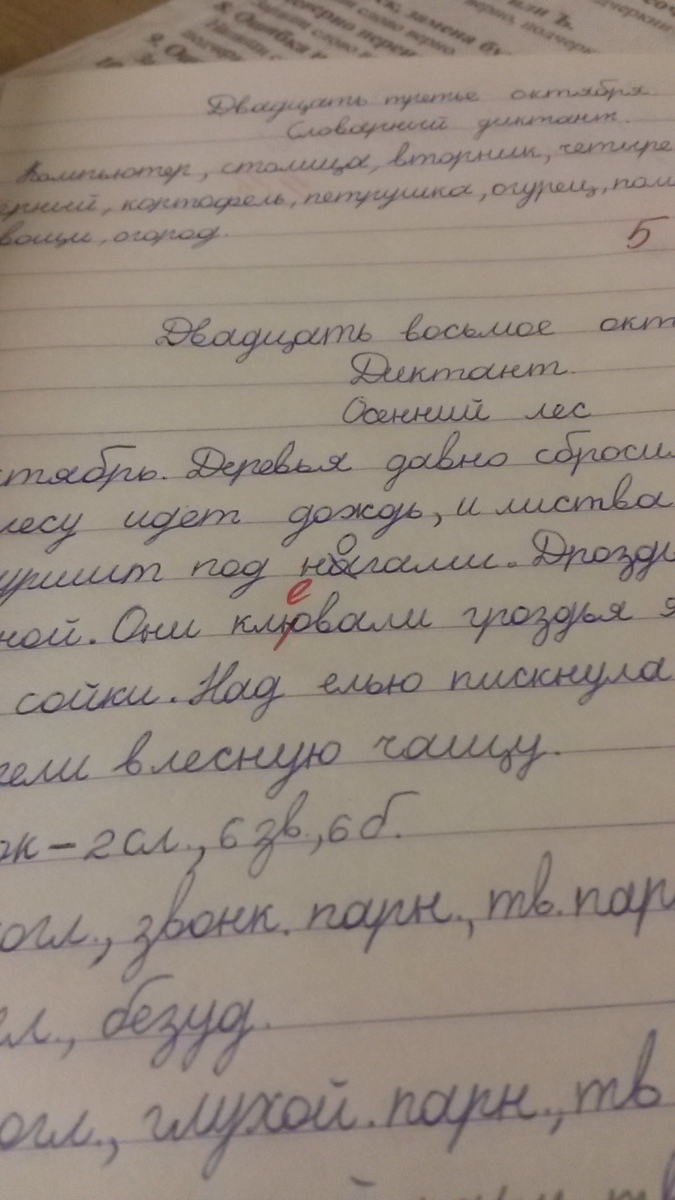 или Ъ.
замена бу
верно, подчерн
8. Ошибка
слово верно.
9.
Двадцать третье октября.
Словарный диктант.
Компьютер, столица, вторник, четыре
картофель, петрушка, огурец, пом
вощи, огород.
5
Двадцать восьмое окт
Диктант.
Осенний лес
ктябрь. Деревья давно сброси
лесу идет дождь, и листва
уршит под ногами. Дрозды
ной. Они клевали гроздья я
сойки. Над елью пискнула
тели в лесную чащу.
ок – 2 сл., 6 зв., 6 б.
огл., звонк. парн., тв. пар
гл., безуд.
огл., глухой. парн., тв